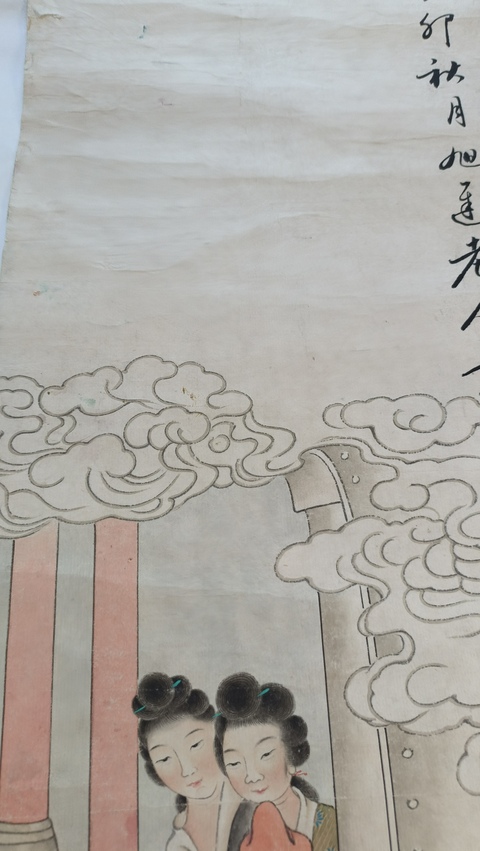 卯秋月旭蓬老人